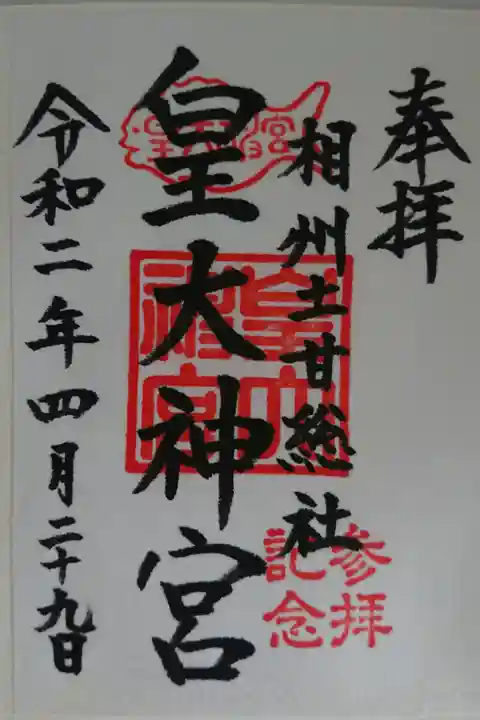 奉拝
相州土甘総社
皇大神宮
令和二年四月二十九日
皇大神宮
参拝
記念